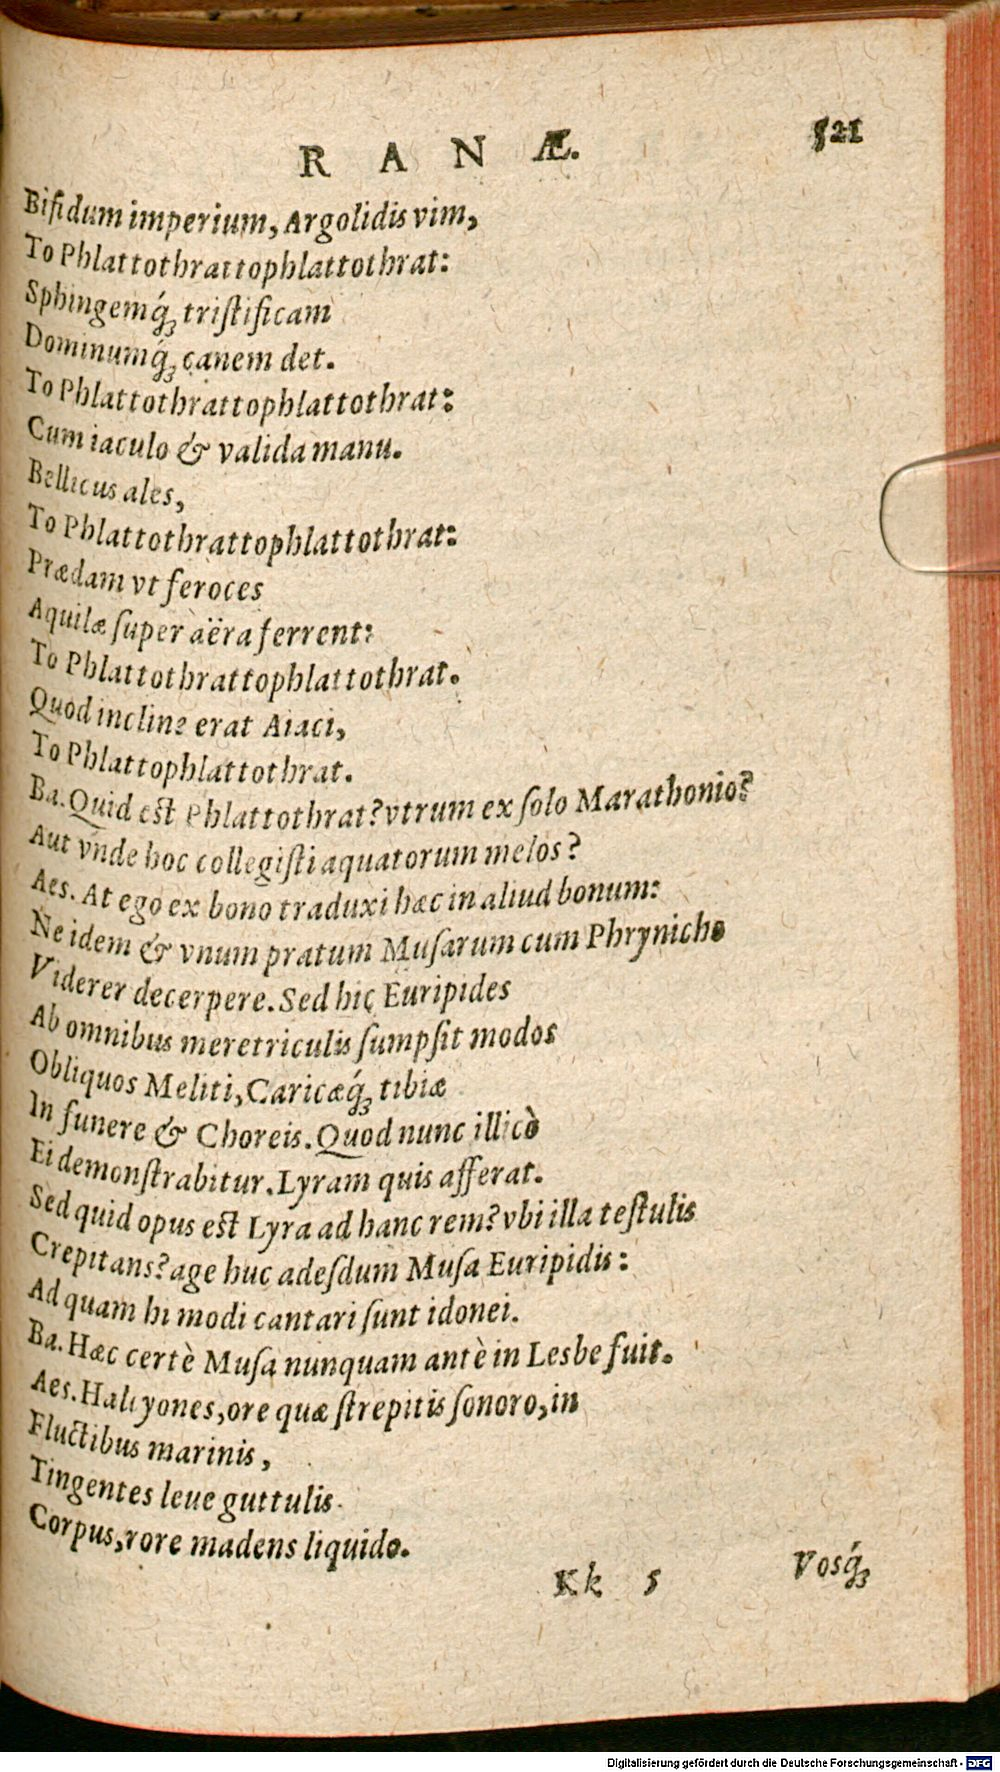 R A N Æ. 521
Bifidum imperium, Argolidis vim,
To Phlattothrattophlattothrat:
Sphingemq́; triſtificam
Dominumq́; canem det.
To Phlattothrattophlattothrat:
Cum iaculo & valida manu.
Bellicus ales,
To Phlattothrattophlattothrat:
Prædam vt feroces
Aquilæ ſuper aëra ferrent:
To Phlattothrattophlattothrat.
Quod incline erat Aiaci,
To Phlattophlattothrat.
Ba. Quid eſt Phlattothrat? vtrum ex ſolo Marathonio?
Aut vnde hoc collegiſti aquatorum melos?
Aes. At ego ex bono traduxi hæc in aliud bonum:
Ne idem & vnum pratum Muſarum cum Phrynicho
Viderer decerpere. Sed hic Euripides
Ab omnibus meretriculis ſumpſit modos
Obliquos Meliti, Caricæq́; tibiæ
In funere & Choreis. Quod nunc illicò
Ei demonſtrabitur. Lyram quis afferat.
Sed quid opus eſt Lyra ad hanc rem? vbi illa teſtulis
Crepitans? age huc adeſdum Muſa Euripidis:
Ad quam hi modi cantari ſunt idonei.
Ba. Hæc certè Muſa nunquam antè in Lesbe fuit.
Aes. Halcyones, ore quæ ſtrepitis ſonoro, in
Fluctibus marinis,
Tingentes leue guttulis
Corpus, rore madens liquido.
Kk 5 Vosq́;
Digitalisierung gefördert durch die Deutsche Forschungsgemeinschaft - DFG